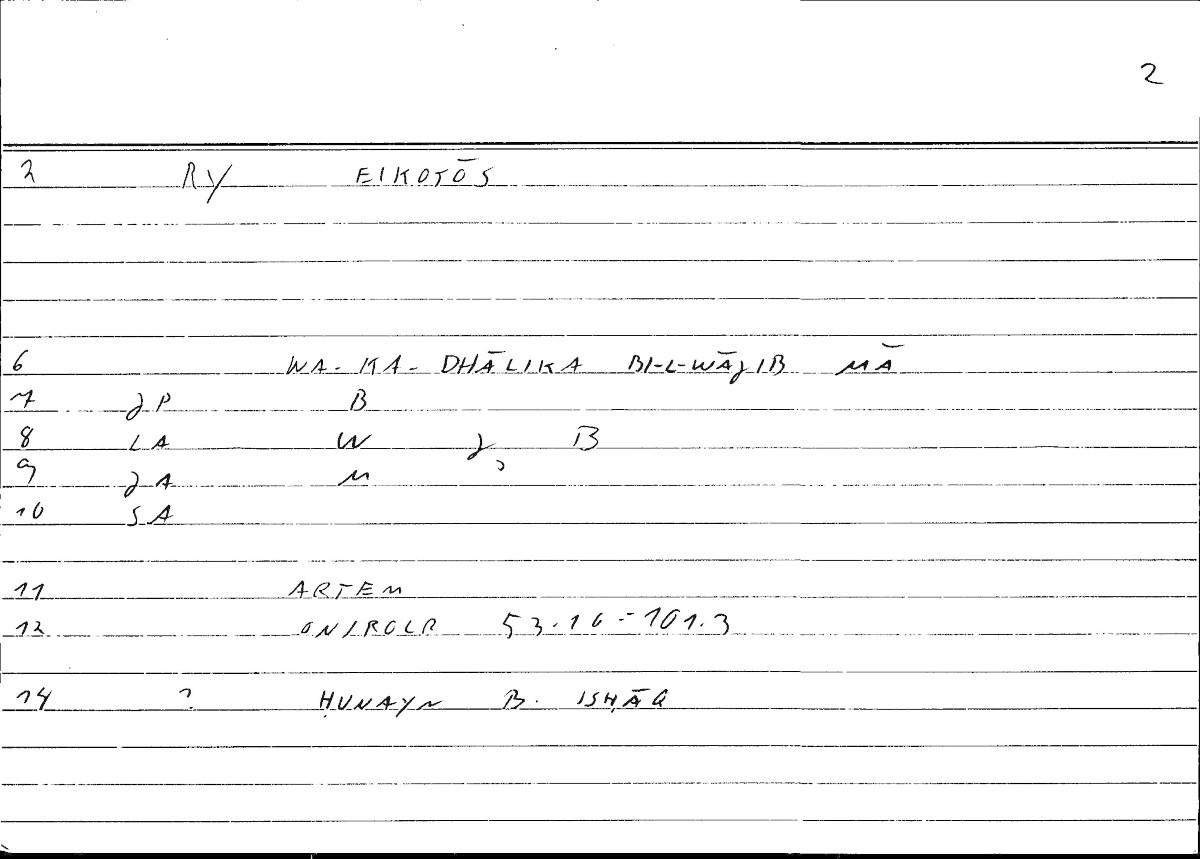 2
2 RY EIKOTŌS
6 WA-KA-DHĀLIKA BI-L-WĀJIB MĀ
7 JP B
8 LA W J, B
9 JA M
10 SA
11 ARTEM
12 ONIROCR 53.16 = 101.3
14 ? ḤUNAYN B. ISḤĀQ